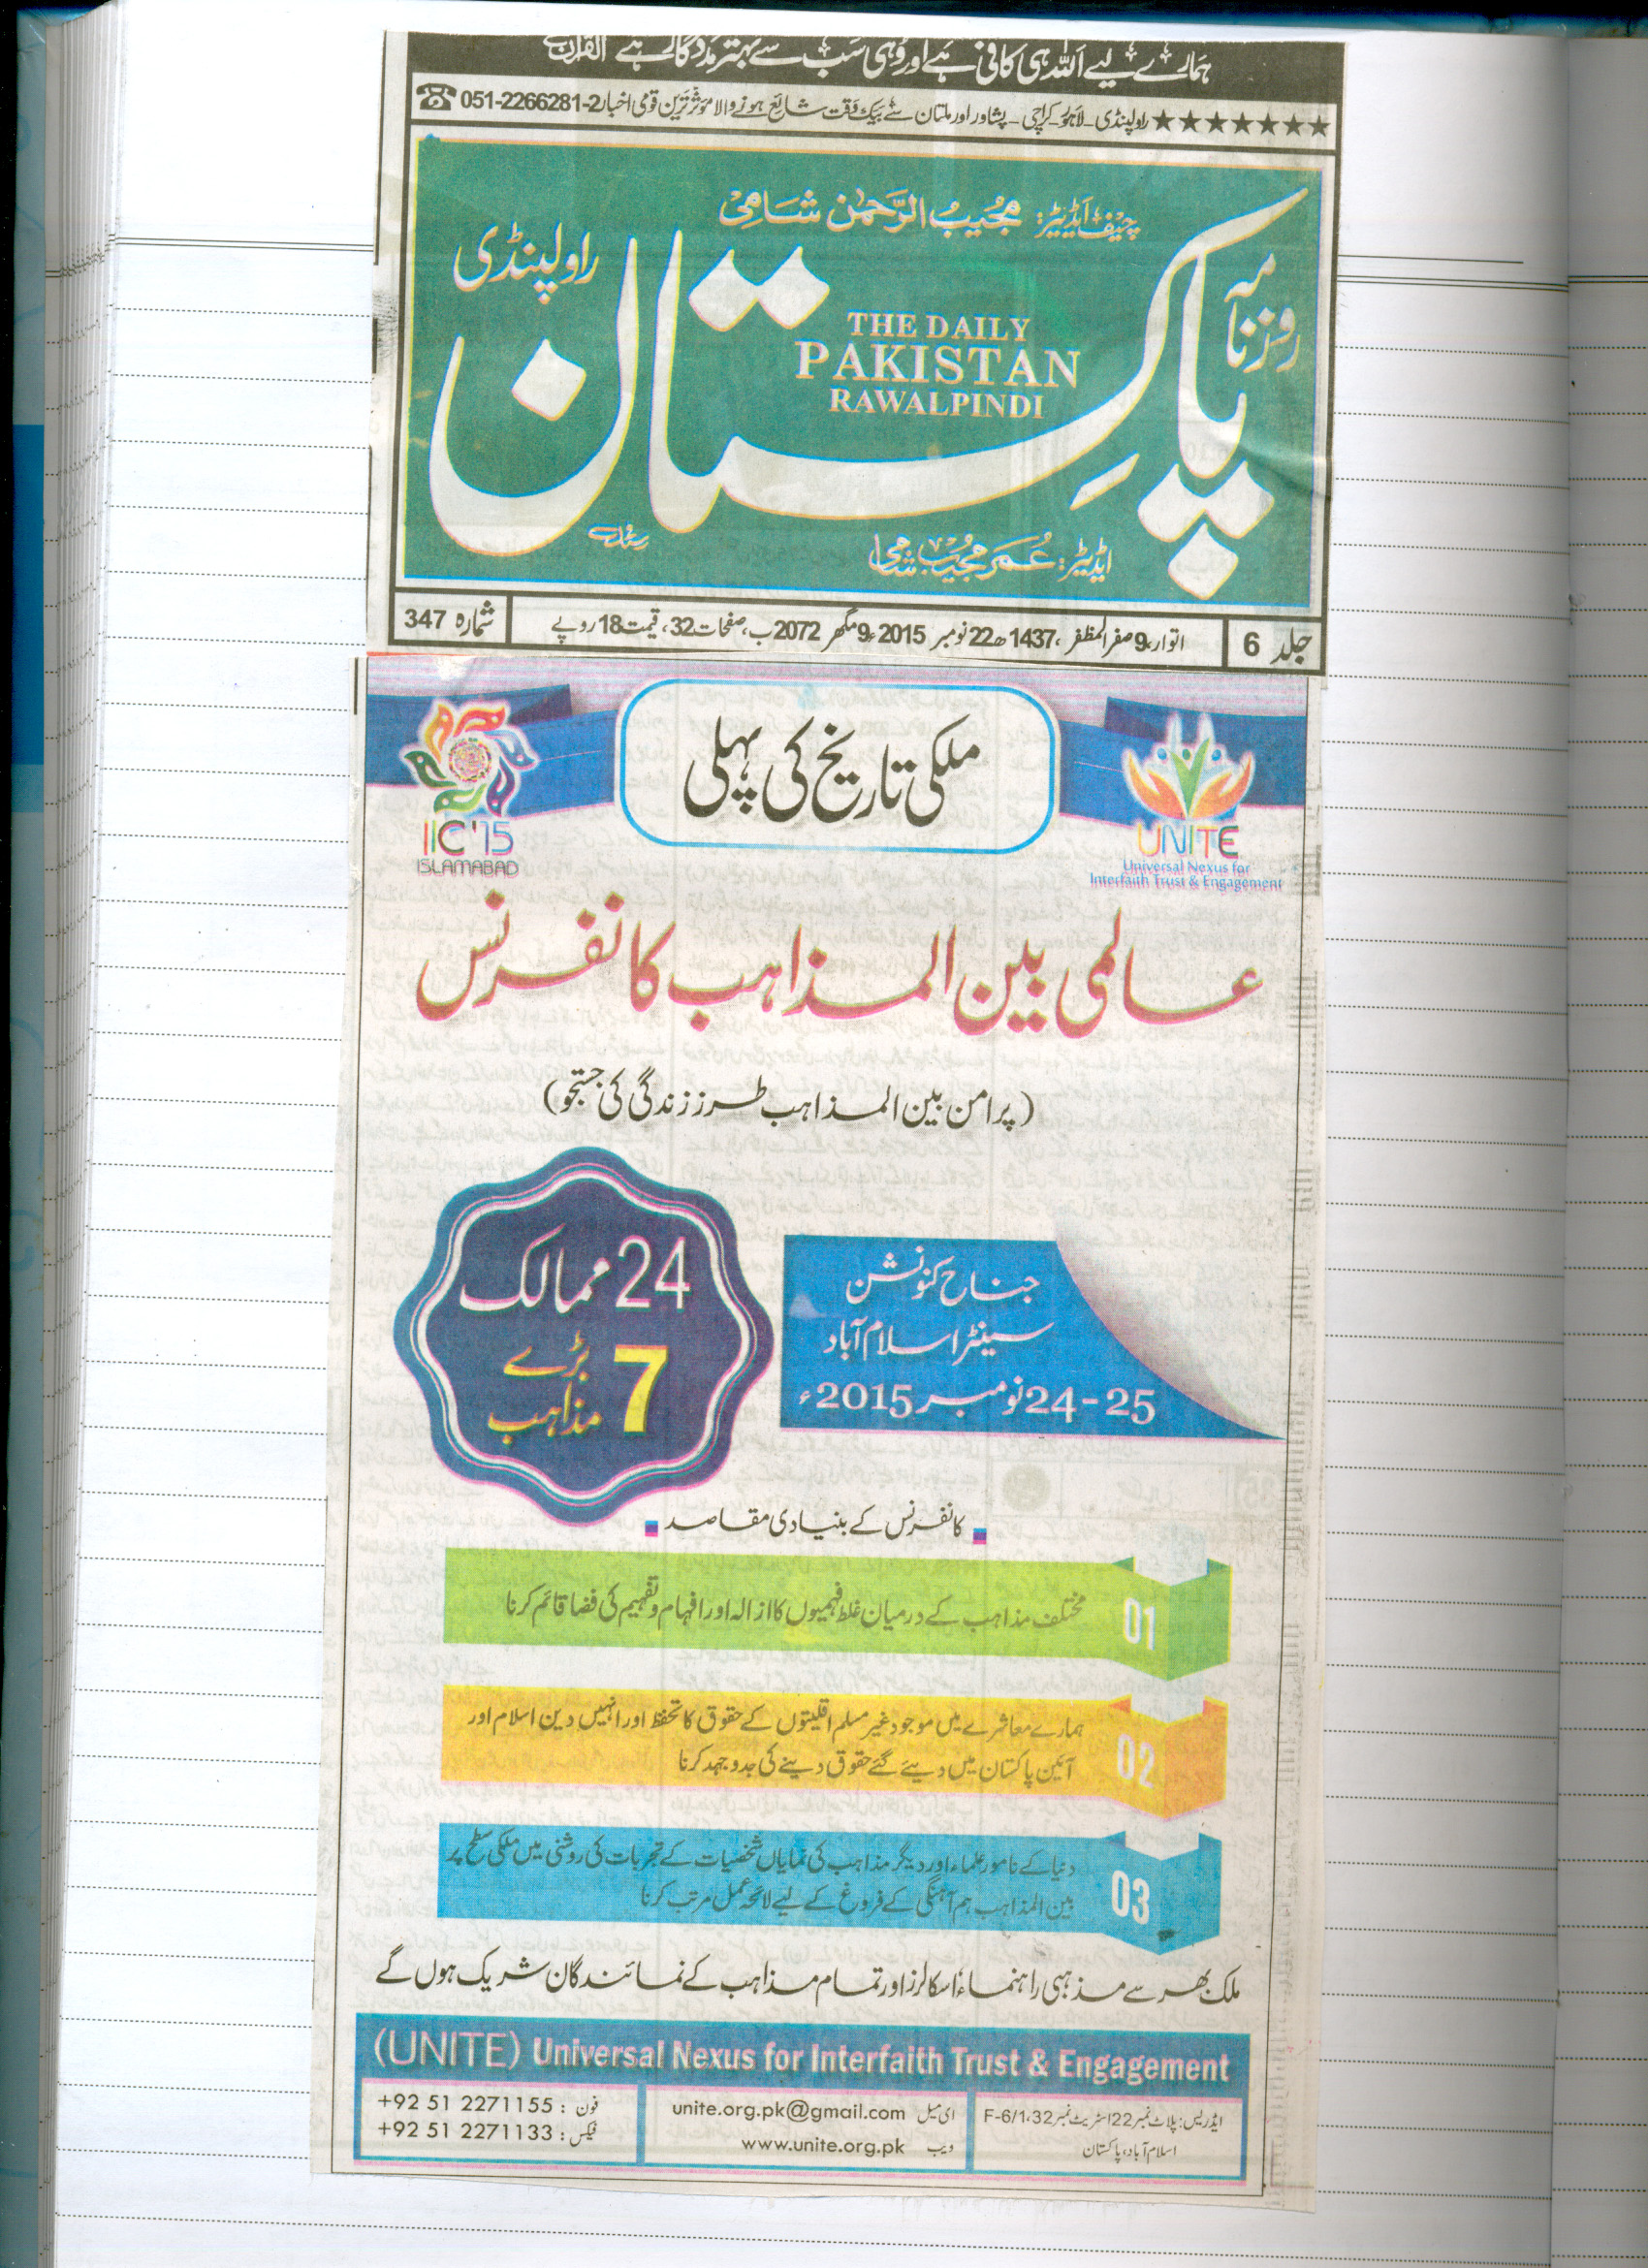 ہمارے لیے اللہ ہی کافی ہے اور وہی سب سے بہتر مددگار ہے القرآن
★★★★★★★ راولپنڈی۔لاہور۔کراچی۔پشاور اور ملتان سے بیک وقت شائع ہونے والا مؤثر ترین قومی اخبار 051-2266281-2
چیف ایڈیٹر: مجیب الرحمن شامی
روزنامہ
پاکستان
راولپنڈی
THE DAILY
PAKISTAN
RAWALPINDI
ایڈیٹر: عمر مجیب شامی
جلد 6
اتوار، 9 صفر المظفر، 1437ھ 22 نومبر 2015ء 9 مگھر 2072ب، صفحات 32، قیمت 18 روپے
شمارہ 347
ملکی تاریخ کی پہلی
IIC'15
ISLAMABAD
UNITE
Universal Nexus for
Interfaith Trust & Engagement
عالمی بین المذاہب کانفرنس
(پرامن بین المذاہب طرز زندگی کی جستجو)
24 ممالک
7 بڑے
مذاہب
جناح کنونشن
سینٹر اسلام آباد
24-25 نومبر 2015ء
کانفرنس کے بنیادی مقاصد
01
مختلف مذاہب کے درمیان غلط فہمیوں کا ازالہ اور افہام و تفہیم کی فضا قائم کرنا
02
ہمارے معاشرے میں موجود غیر مسلم اقلیتوں کے حقوق کا تحفظ اور انہیں دین اسلام اور
آئین پاکستان میں دیئے گئے حقوق دینے کی جدوجہد کرنا
03
دنیا کے نامور علماء اور دیگر مذاہب کی نمایاں شخصیات کے تجربات کی روشنی میں ملکی سطح پر
بین المذاہب ہم آہنگی کے فروغ کے لیے لائحہ عمل مرتب کرنا
ملک بھر سے مذہبی راہنماء اسکالرز اور تمام مذاہب کے نمائندگان شریک ہوں گے
(UNITE) Universal Nexus for Interfaith Trust & Engagement
ایڈریس: پلاٹ نمبر 22 اسٹریٹ نمبر 32، F-6/1
اسلام آباد، پاکستان
ای میل unite.org.pk@gmail.com
ویب www.unite.org.pk
فون : +92 51 2271155
فیکس : +92 51 2271133